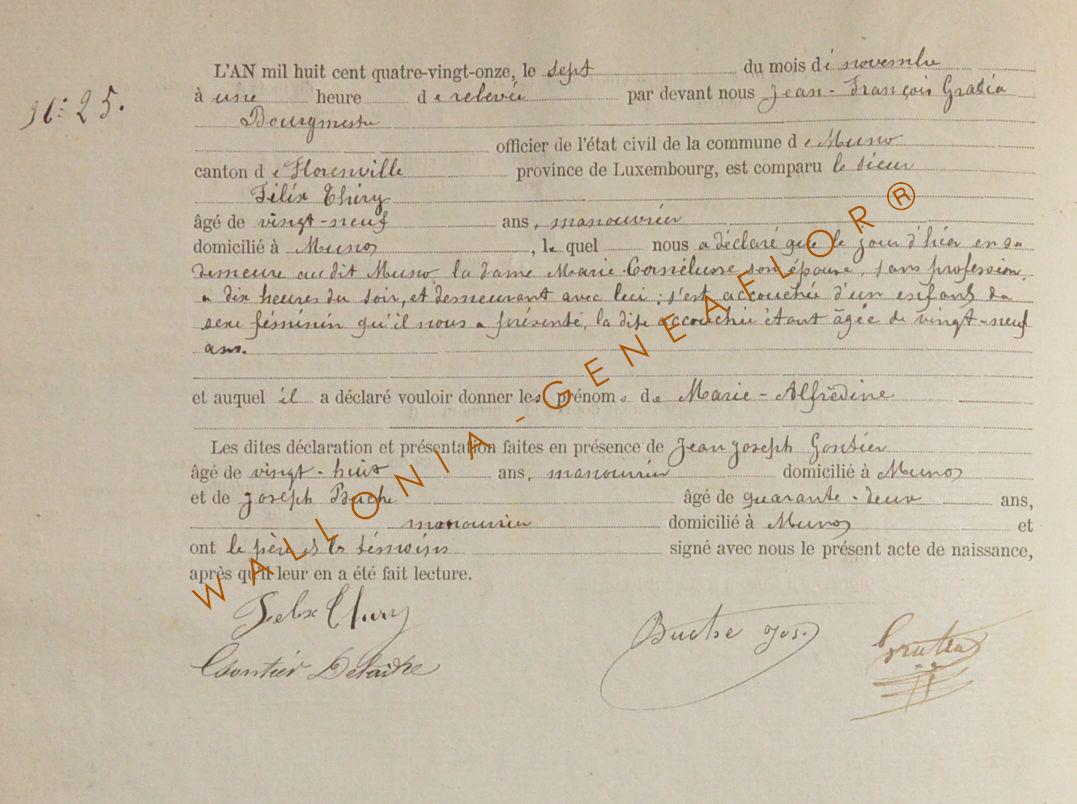 N°: 25.
L'AN mil huit cent quatre-vingt-onze, le sept du mois de novembre
à une heure de relevée par devant nous Jean-François Gratia
Bourgmestre
officier de l'état civil de la commune de Muno
canton de Florenville province de Luxembourg, est comparu le sieur
Félix Thiry
âgé de vingt-neuf ans, manouvrier
domicilié à Muno, lequel nous a déclaré que le jour d'hier en sa
demeure audit Muno la dame Marie Cornélusse son épouse, sans profession,
a dix heures du soir, et demeurant avec lui ; s'est accouchée d'un enfant du
sexe féminin qu'il nous a présenté, la dite accouchée étant âgée de vingt-neuf
ans.
et auquel il a déclaré vouloir donner les prénoms de Marie-Alfrédine
Les dites déclaration et présentation faites en présence de Jean Joseph Gontier
âgé de vingt-huit ans, manouvrier domicilié à Muno
et de Joseph Buche âgé de quarante-deux ans,
manouvrier domicilié à Muno et
ont le père et les témoins signé avec nous le présent acte de naissance,
après qu'il leur en a été fait lecture.
Felix Thiry
Buche Jos.
Gratia
Gontier
WALLONIA-GENEAFLOR®